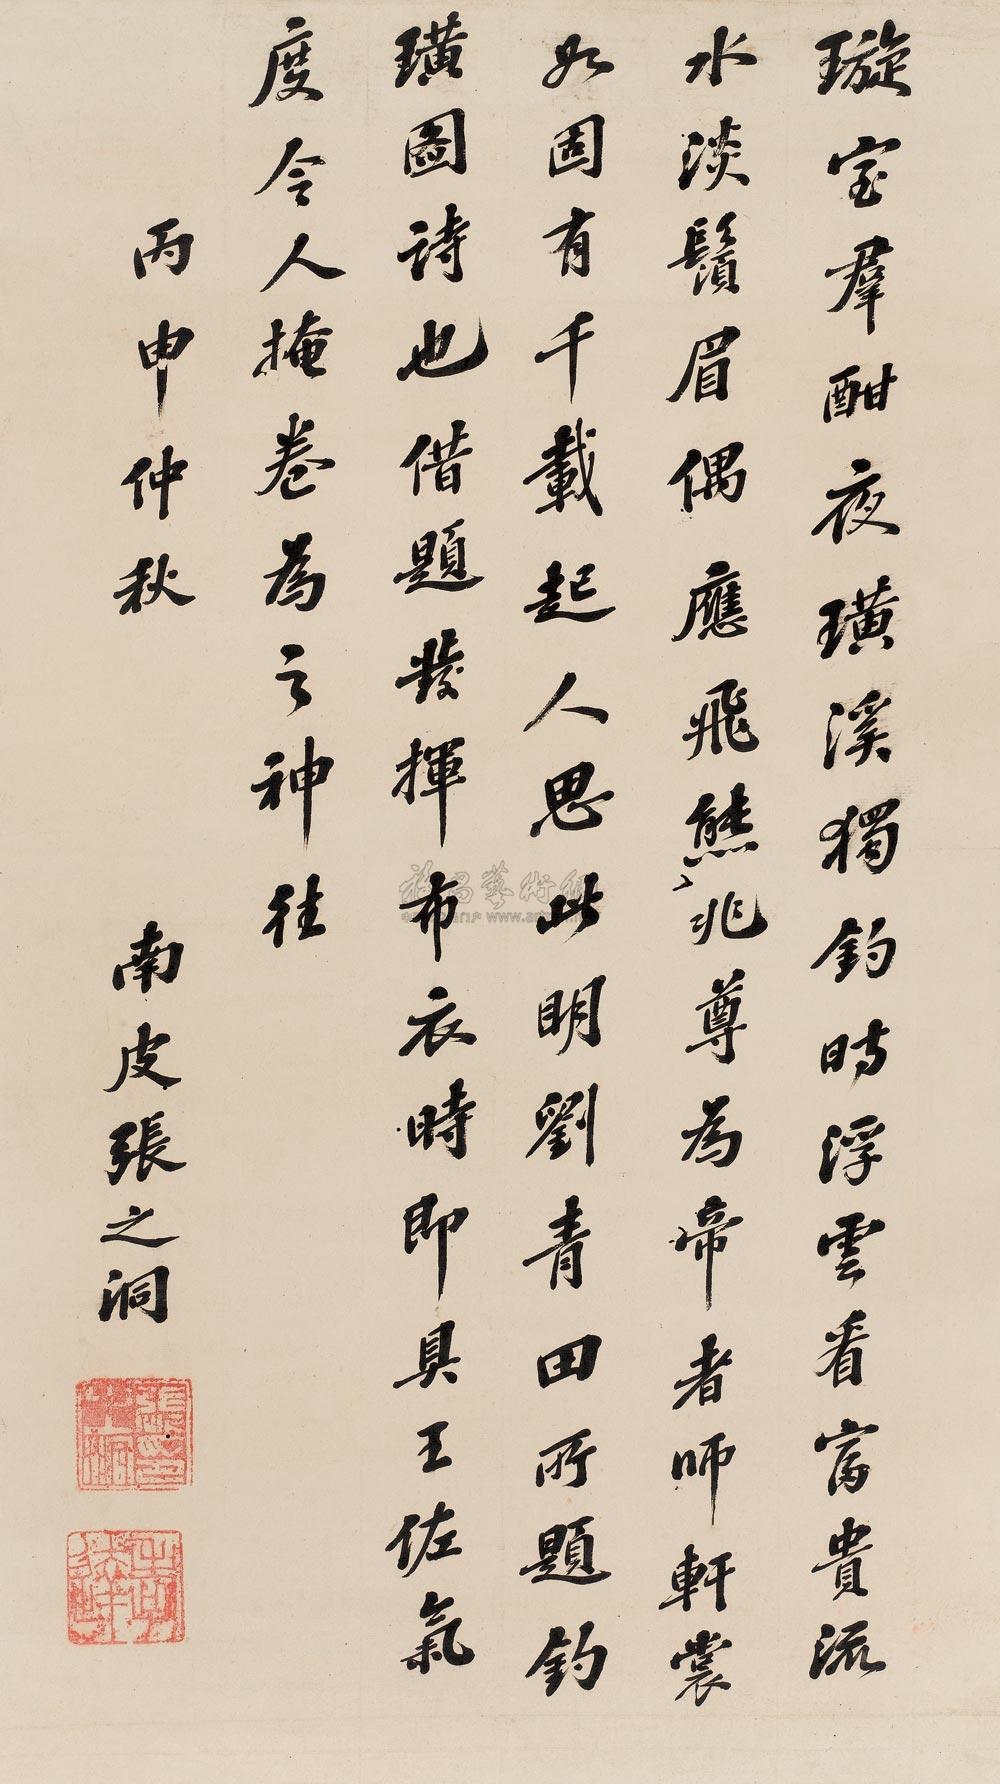 璇室羣酣夜璜溪獨釣時浮雲看富貴流
水淡鬚眉偶應飛熊兆尊為帝者師軒裳
如固有千載起人思此明劉青田所題釣
璜圖詩也借題發揮布衣時即具王佐氣
度令人掩卷為之神往
丙申仲秋
南皮張之洞